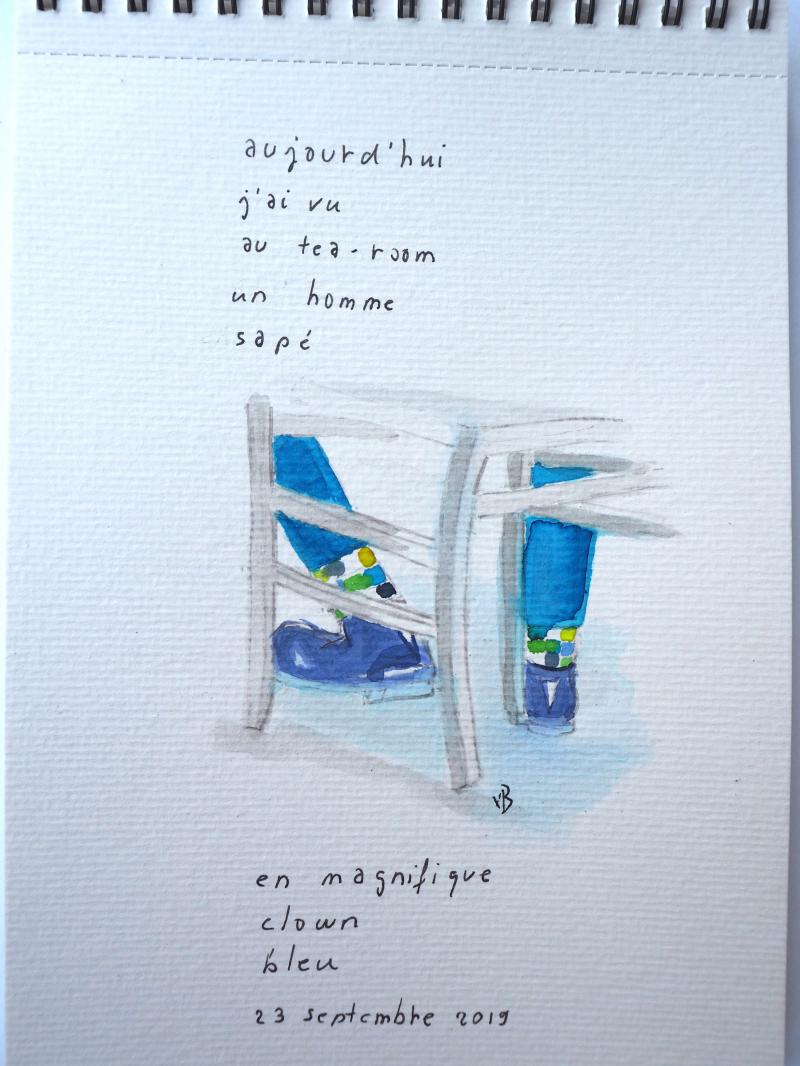 aujourd'hui
j'ai vu
au tea-room
un homme
sapé
vB
en magnifique
clown
bleu
23 septembre 2019